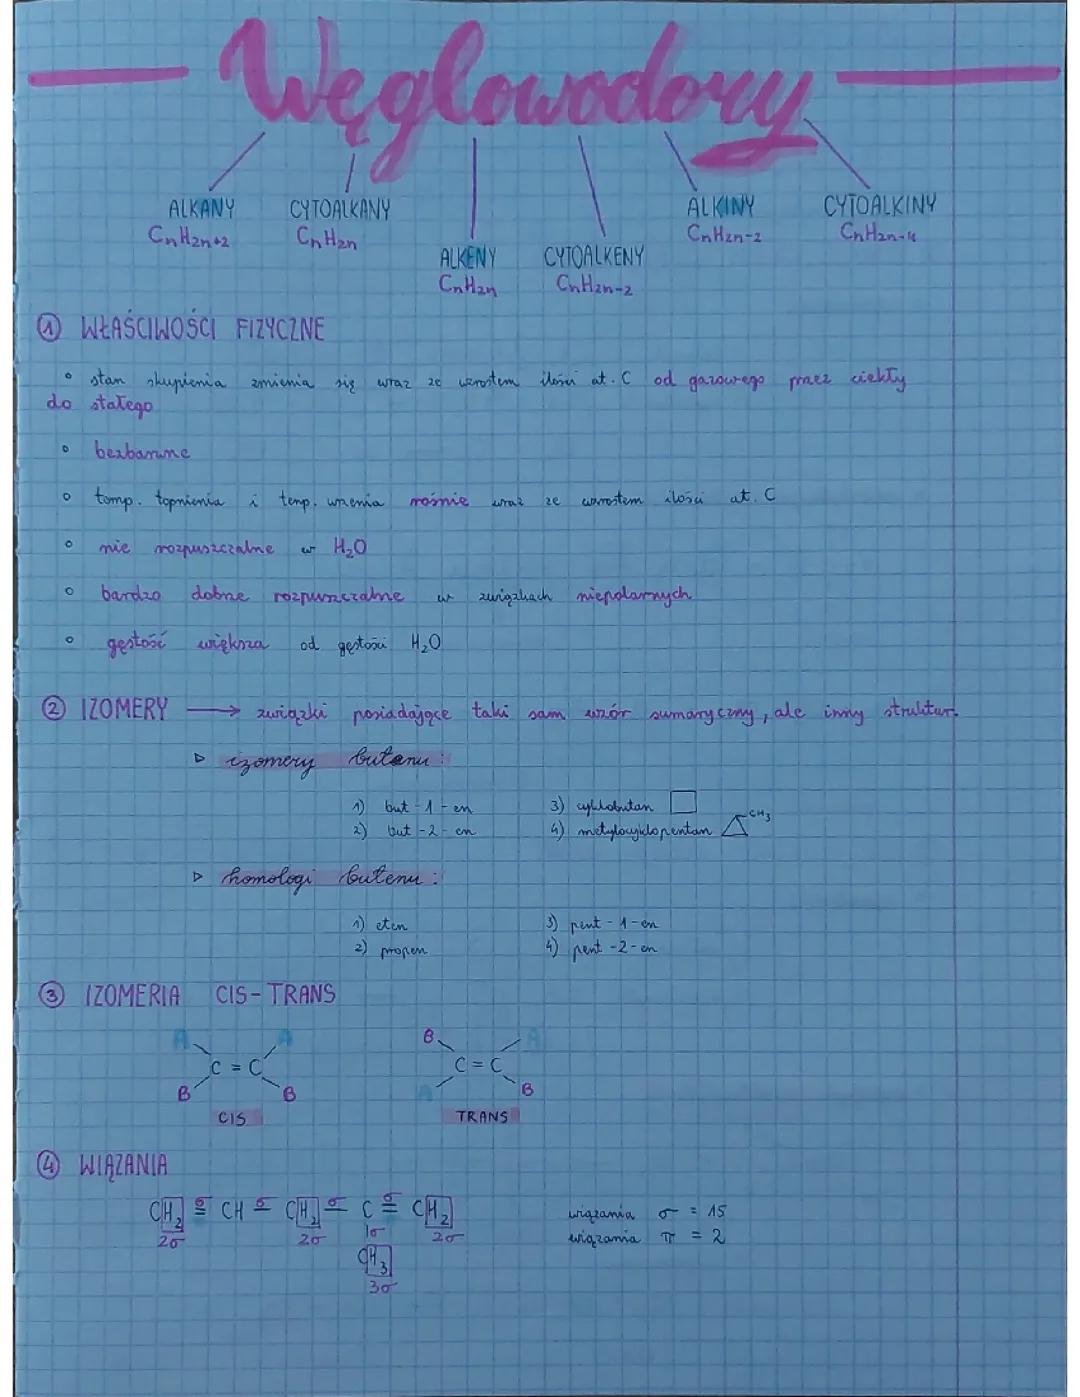 Węglowodory
ALKANY CYTOALKANY ALKINY CYTOALKINY
CnH2n+2 CnH2n CnH2n-2 CnH2n-4
ALKENY CYTOALKENY
CnH2n CnH2n-2
① WŁAŚCIWOŚCI FIZYCZNE
• stan skupienia zmienia się wraz ze wzrostem ilości at. C od gazowego przez ciekły
do stałego
• bezbarwne
• temp. topnienia i temp. wrzenia rośnie wraz ze wzrostem ilości at. C
• nie rozpuszczalne w H₂O
• bardzo dobrze rozpuszczalne w związkach niepolarnych
• gęstość większa od gęstości H₂O
② IZOMERY → związki posiadające taki sam wzór sumaryczny, ale inny struktur.
▷ izomery butanu:
1) but-1-en 3) cyklobutan
2) but-2-en 4) metylocyklopentan CH₃
▷ homologi butenu:
1) eten 3) pent-1-en
2) propen 4) pent-2-en
③ IZOMERIA CIS-TRANS
A A B A
C = C C = C
B B A B
CIS TRANS
④ WIĄZANIA
CH₂ σ= CH σ- CH₂ σ- C σ= CH₂ wiązania σ = 15
2σ 2σ 1σ 2σ wiązania π = 2
CH₃
3σ